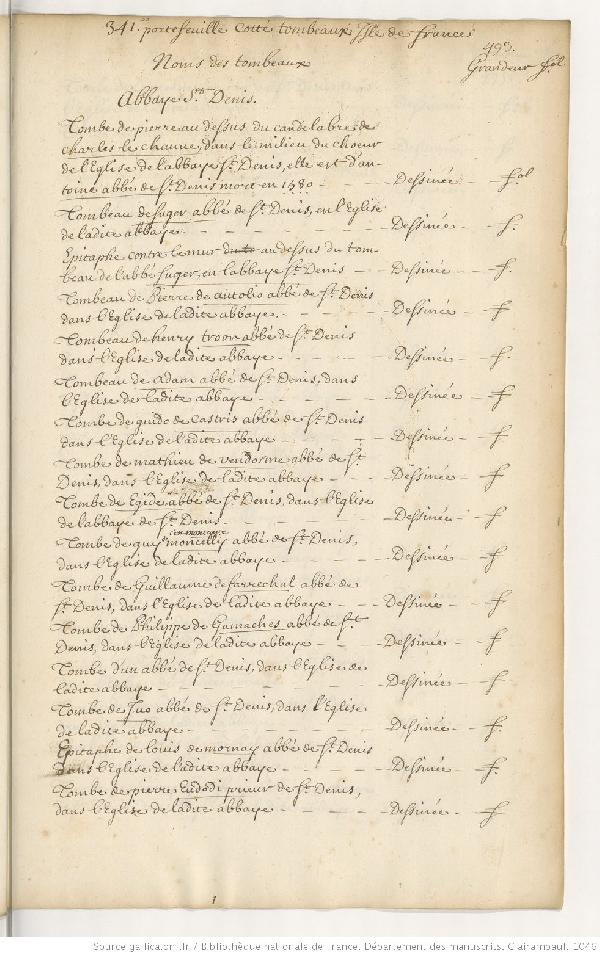 341. portefeuille Cotté tombeaux Isle de frances
493.
Noms des tombeaux Grandeur fol
Abbaye St. Denis.
Tombe de pierre au dessus du candelabre de
charles le chauve, dans le milieu du choeur
de l'Eglise de l'abbaye St. Denis, elle est d'an-
toine abbé de St. Denis mort en 1580 - - - Dessinée - fol
Tombeau de Suger abbé de St. Denis, en l'Eglise
de ladite abbaye. - - - - Dessinée - f.
Epitaphe contre le mur au dessus du tom-
beau de l'abbé Suger, en l'abbaye St. Denis - - Dessinée - f.
Tombeau de Pierre de autolio abbé de St. Denis
dans l'Eglise de ladite abbaye. - - - Dessinée - f
Tombeau de henry troon abbé de St. Denis
dans l'Eglise de ladite abbaye - - - Dessinée - f.
Tombeau de Adam abbé de St. Denis, dans
l'Eglise de ladite abbaye - - - Dessinée - f
Tombe de guido de Castris abbé de St. Denis
dans l'Eglise de ladite abbaye - - - Dessinée - f
Tombe de mathieu de vendosme abbé de St.
Denis, dans l'Eglise de ladite abbaye - - Dessinée - f
Tombe de Egide abbé de St. Denis, dans l'Eglise
de l'abbaye de St. Denis - - - - Dessinée - f
Tombe de guy moncilly abbé de St. Denis,
dans l'Eglise de ladite abbaye - - - Dessinée - f
Tombe de Guillaume de farrechal abbé de
St. Denis, dans l'Eglise de ladite abbaye - - Dessinée - f
Tombe de Philippe de Gamaches abbé de St.
Denis, dans l'Eglise de ladite abbaye - - Dessinée - f
Tombe d'un abbé de St. Denis, dans l'Eglise de
ladite abbaye - - - - - Dessinée - f
Tombe de Juo abbé de St. Denis, dans l'Eglise
de ladite abbaye - - - - Dessinée - f.
Epitaphe de louis de mornay abbé de St. Denis
dans l'Eglise de ladite abbaye - - - Dessinée - f.
Tombe de pierre Eudedi prieur de St. Denis,
dans l'Eglise de ladite abbaye - - - Dessinée - f
Source gallica.bnf.fr / Bibliothèque nationale de France. Département des manuscrits. Clairambault. 1046